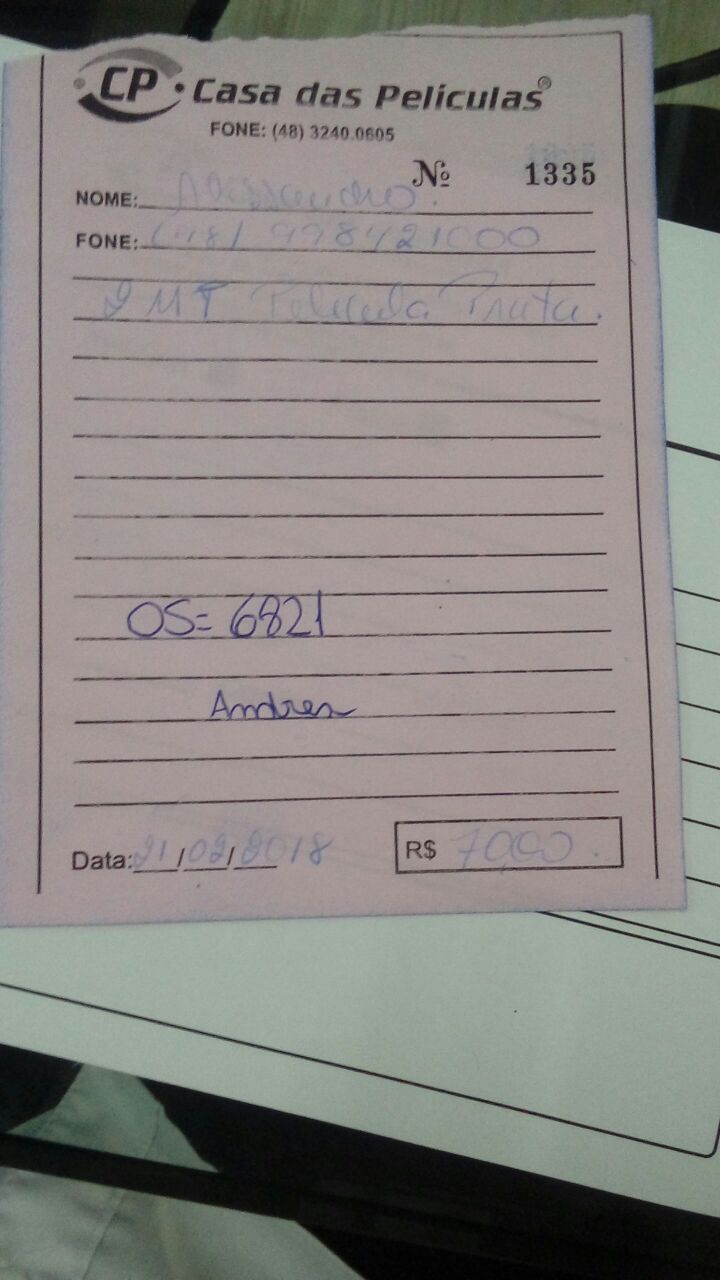 CP Casa das Películas®
FONE: (48) 3240.0605
Nº 1335
NOME: Alessandro.
FONE: (48) 998421000
2 MT Pelicula Prata.
OS= 6821
Andrea
Data: 21/02/2018
R$ 70,00.